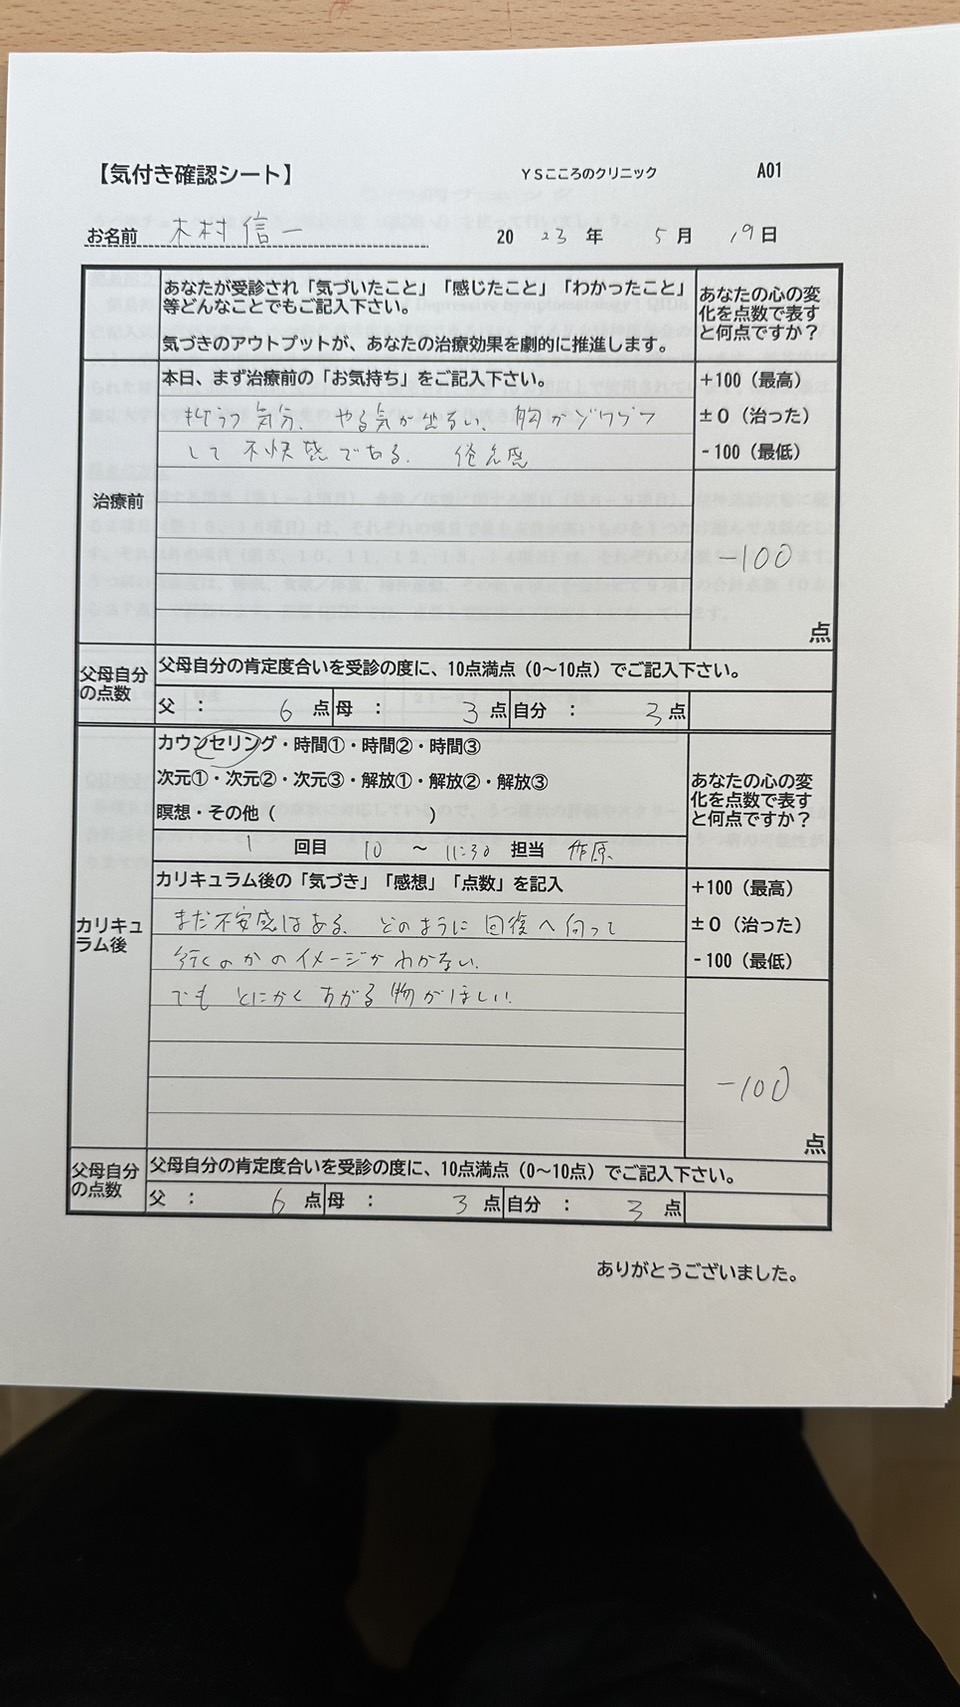 【気付き確認シート】 YSこころのクリニック A01
お名前 木村信一 2023年 5月 19日
あなたが受診され「気づいたこと」「感じたこと」「わかったこと」
等どんなことでもご記入下さい。
気づきのアウトプットが、あなたの治療効果を劇的に推進します。
あなたの心の変
化を点数で表す
と何点ですか？
治療前
本日、まず治療前の「お気持ち」をご記入下さい。
抑うつ気分、やる気が出ない、胸がゾワゾワ
して不快感である。倦怠感
+100（最高）
±0（治った）
-100（最低）
-100
点
父母自分
の点数
父母自分の肯定度合いを受診の度に、10点満点（0～10点）でご記入下さい。
父 ： 6 点 母 ： 3 点 自分 ： 3 点
カリキュ
ラム後
カウンセリング・時間①・時間②・時間③
次元①・次元②・次元③・解放①・解放②・解放③
瞑想・その他（ ）
あなたの心の変
化を点数で表す
と何点ですか？
1 回目 10 ～ 11:30 担当 作原
カリキュラム後の「気づき」「感想」「点数」を記入
まだ不安感はある。どのように回復へ向って
行くのかのイメージがわかない。
でもとにかくあがる物がほしい。
+100（最高）
±0（治った）
-100（最低）
-100
点
父母自分
の点数
父母自分の肯定度合いを受診の度に、10点満点（0～10点）でご記入下さい。
父 ： 6 点 母 ： 3 点 自分 ： 3 点
ありがとうございました。